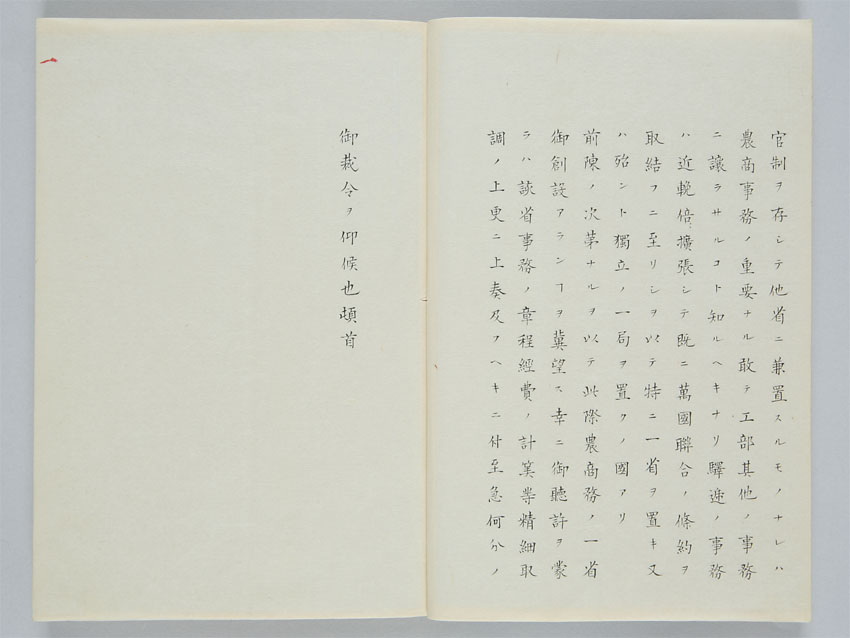 官制ヲ存シテ他省ニ兼置スルモノナレハ
農商事務ノ重要ナル敢テ工部其他ノ事務
ニ讓ラサルコト知ルヘキナリ驛遞ノ事務
ハ近輓倍擴張シテ既ニ萬國聯合ノ條約ヲ
取結フニ至リシヲ以テ特ニ一省ヲ置キ又
ハ殆ント獨立ノ一局ヲ置クノ國アリ
前陳ノ次第ナルヲ以テ此際農商務ノ一省
御創設アランヿヲ冀望ス幸ニ御聽許ヲ蒙
ラハ該省事務ノ章程經費ノ計筭等精細取
調ノ上更ニ上奏及フヘキニ付至急何分ノ
御裁令ヲ仰候也頓首